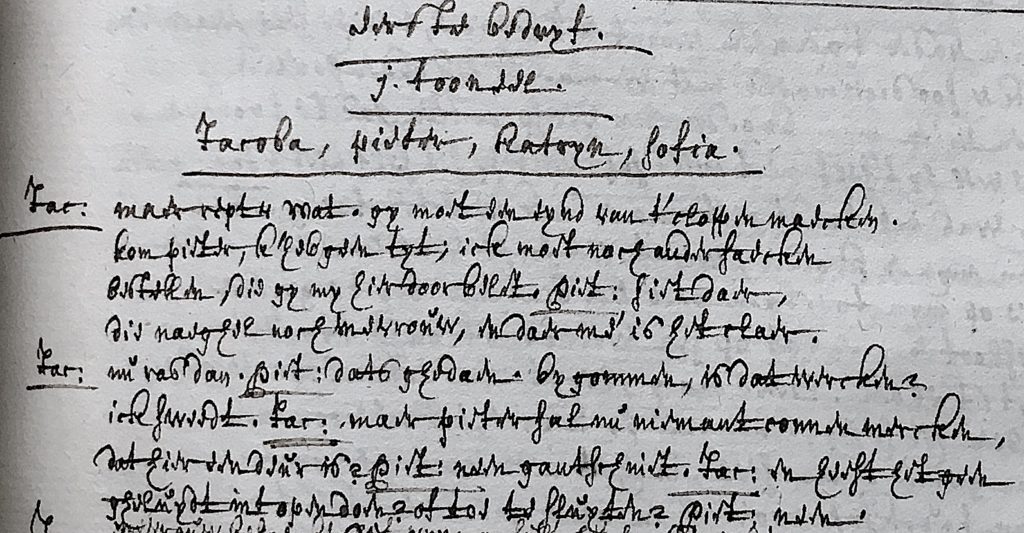 eerste bedryf.
j. tooneel.
Jacoba, pieter, Katryn, Sofia.
Jac: maer rept u wat. gy moet een eynd van t' cloppen maecken.
kom pieter, k'heb geen tyt; ick moet noch ander saecken
bestellen, die gy my hier door belet. Piet: siet daer,
die naeghel noch mevrouw, en daer me' is het claer.
Jac: nu ras dan. Piet: dats ghedaen. by gommen, is dat wercken?
ick sweedt. Jac: maer pieter sal nu niemant connen mercken,
dat hier een deur is? Piet: neen gantsch niet. Jac: en heeft het geen
gheluydt int open doen? of toe te sluyten? Piet: neen.